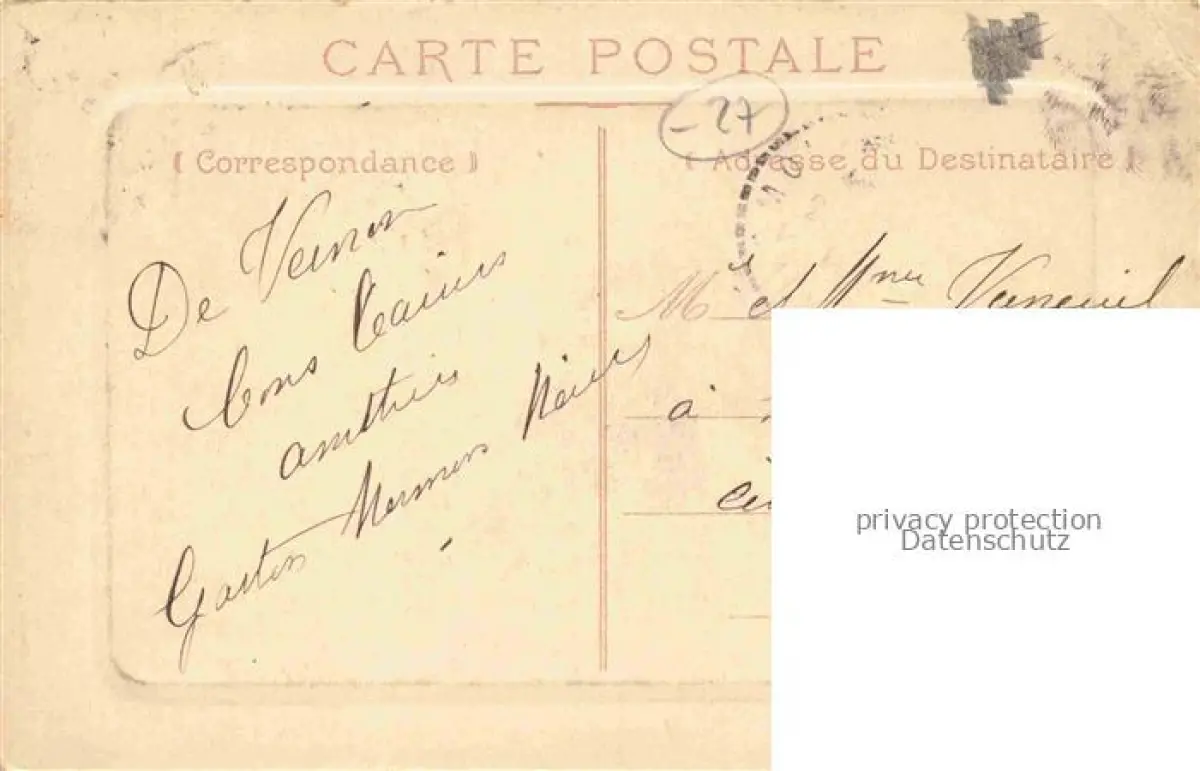 CARTE POSTALE
- 27
( Correspondance )
( Adresse du Destinataire )
De Vernon
bons baisers
amitiés
Gaston
M et Mme Verneuil
à
privacy protection
Datenschutz